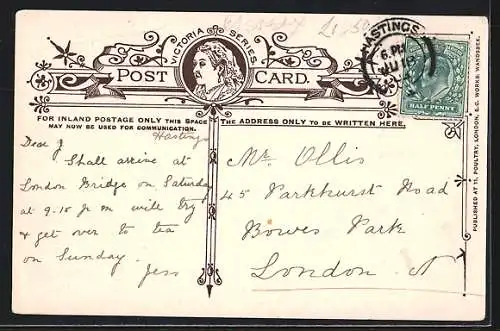 VICTORIA SERIES
POST CARD.
HASTINGS
6. PM
HALF PENNY
FOR INLAND POSTAGE ONLY THIS SPACE
MAY NOW BE USED FOR COMMUNICATION.
THE ADDRESS ONLY TO BE WRITTEN HERE.
Hastings
Dear J
Shall arrive at
London Bridge on Saturday
at 9.10 pm will try
& get over to tea
on Sunday.
Jess
Mr. Ollis
45 Parkhurst Road
Bowes Park
London N
PUBLISHED AT 11, POULTRY, LONDON, E.C. WORKS: WANDSBEK.